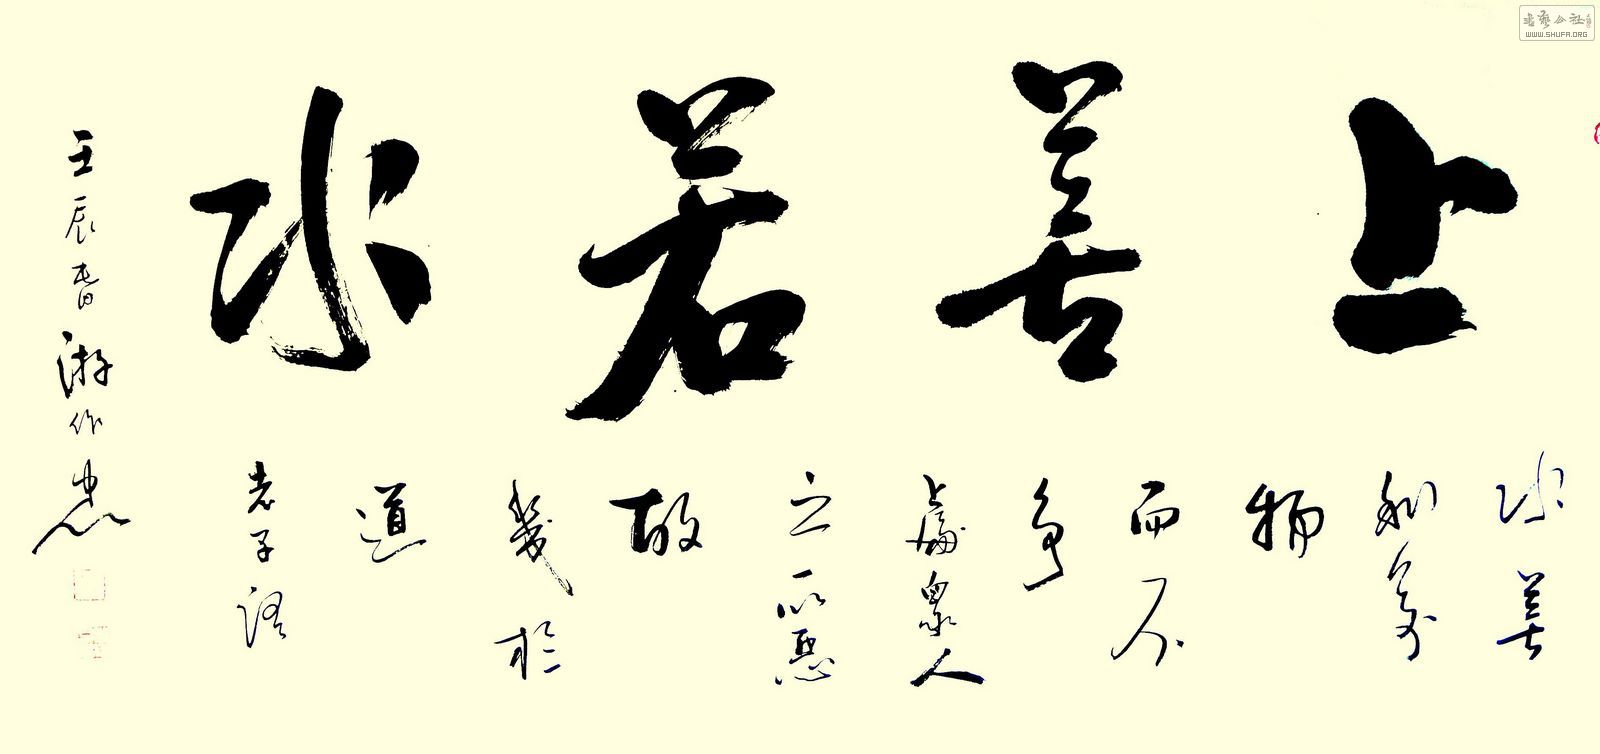 上善若水
水善
利萬
物
而不
爭
處衆人
之所惡
故
幾於
道
老子語
壬辰春游作忠
書藝公社
WWW.SHUFA.ORG